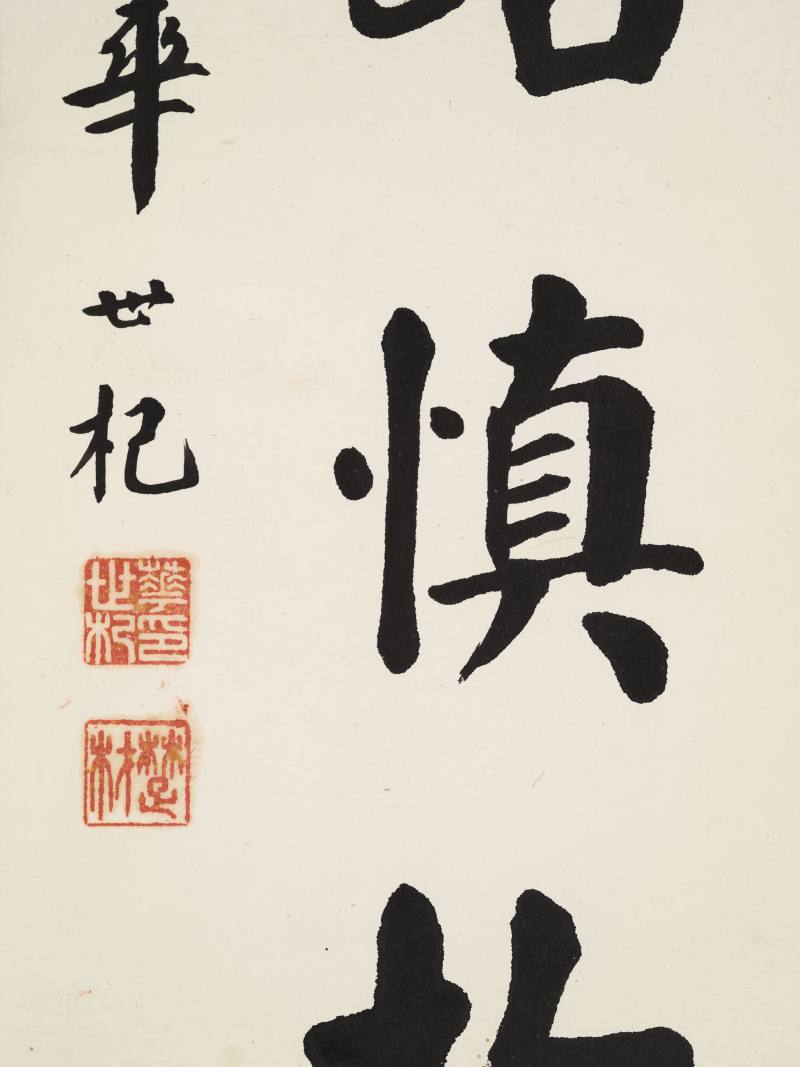 慎
華世杞
華印世杞
楚材